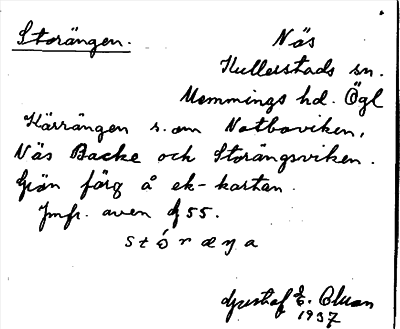 Storängen. Näs
Kullerstads sn.
Memmings hd. Ögl
Kärrängen s. om Notboviken,
Näs Backe och Storängsviken.
Grön färg å ek-kartan.
Jmfr. även f 55.
Gustaf E. Olson
1937